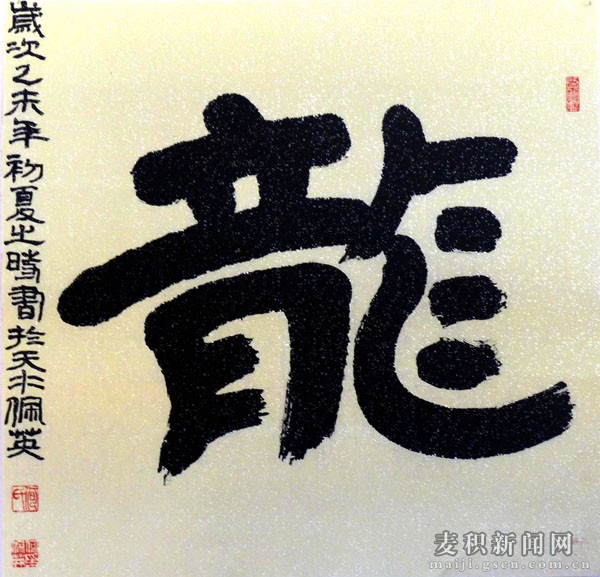 龍
歲次乙未年初夏之時書於天水佩英
麦积新闻网
maiji.gscn.com.cn